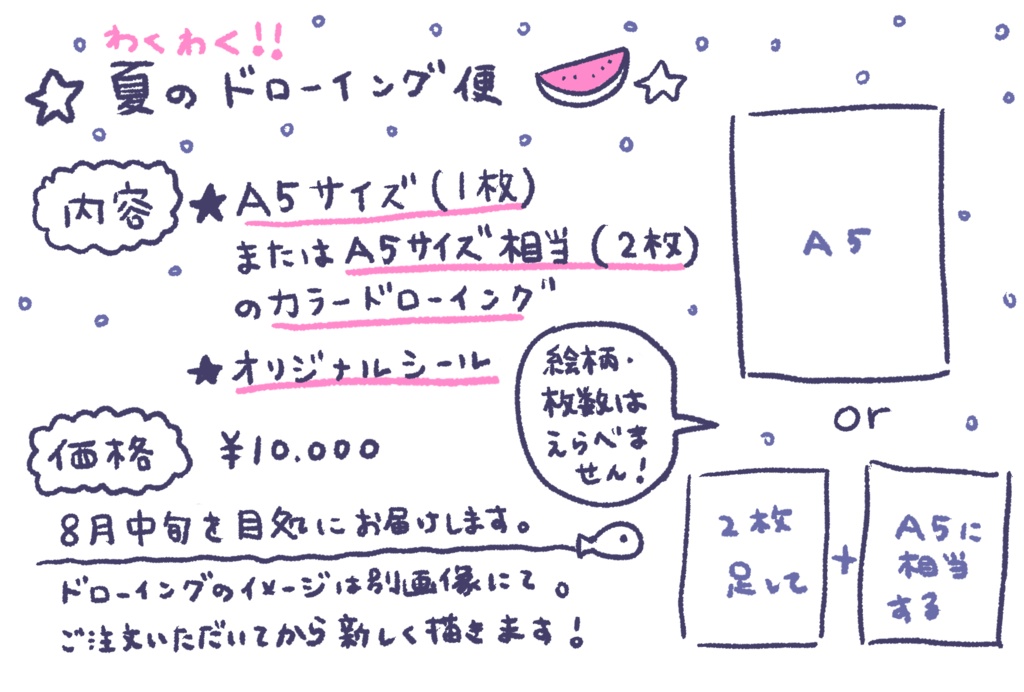 わくわく!!
夏のドローイング便
内容
★A5サイズ(1枚)
またはA5サイズ相当(2枚)
のカラードローイング
★オリジナルシール
価格
¥10.000
8月中旬を目処にお届けします。
ドローイングのイメージは別画像にて。
ご注文いただいてから新しく描きます!
絵柄・
枚数は
えらべま
せん!
A5
or
2枚
足して
+
A5に
相当
する